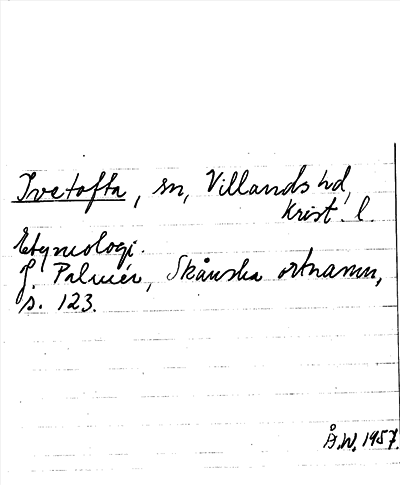 Ivetofta, sn, Villands hd,
Krist. l.
Etymologi.
J. Palmér, Skånska ortnamn,
s. 123.
Å.W. 1957.